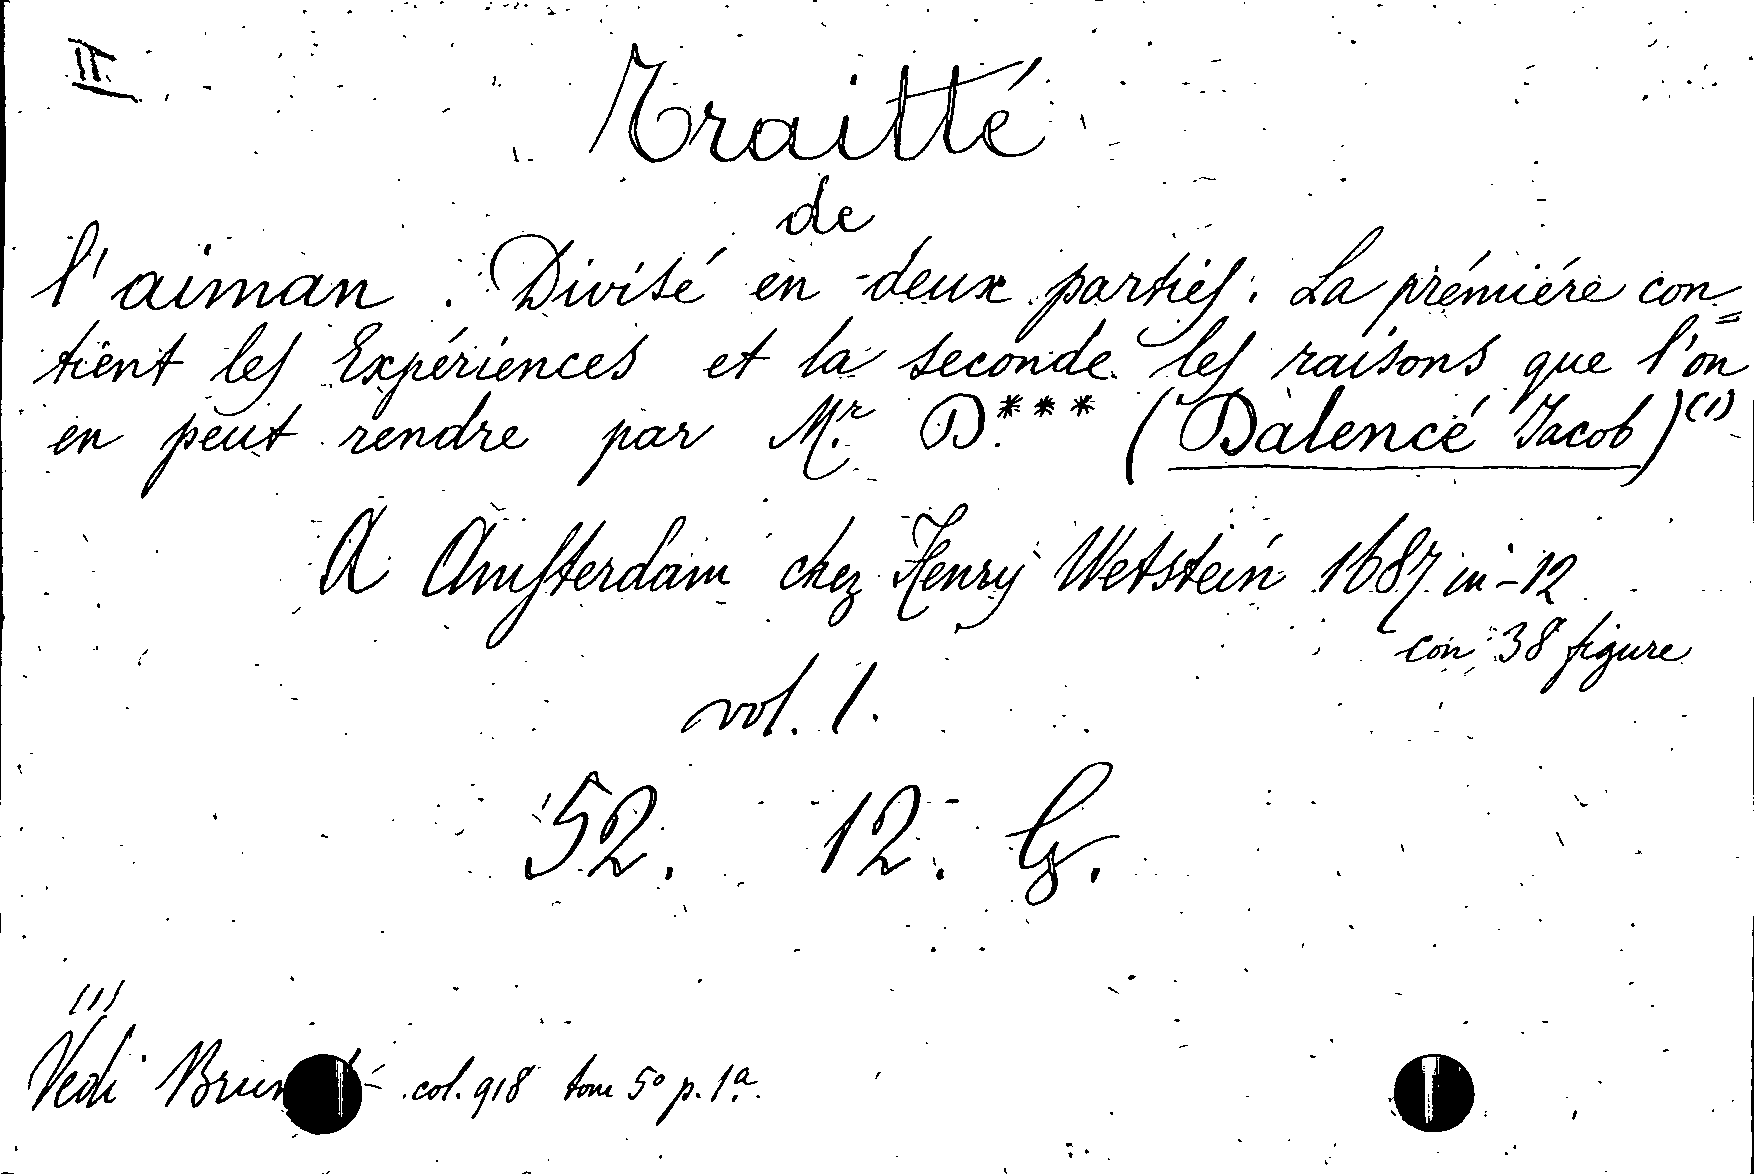 II.
Traitté
de
l'aiman. Divisé en deux parties. La prémiére con=
tient les Expériences et la seconde les raisons que l'on
en peut rendre par Mr. D.*** (Dalencé Jacob)(1)
A Amsterdam chez Henry Wetstein 1687 in-12
con 38 figure
vol. 1.
52. 12. G.
(1)
Vedi col. 918 tom 5º p. 1ª.